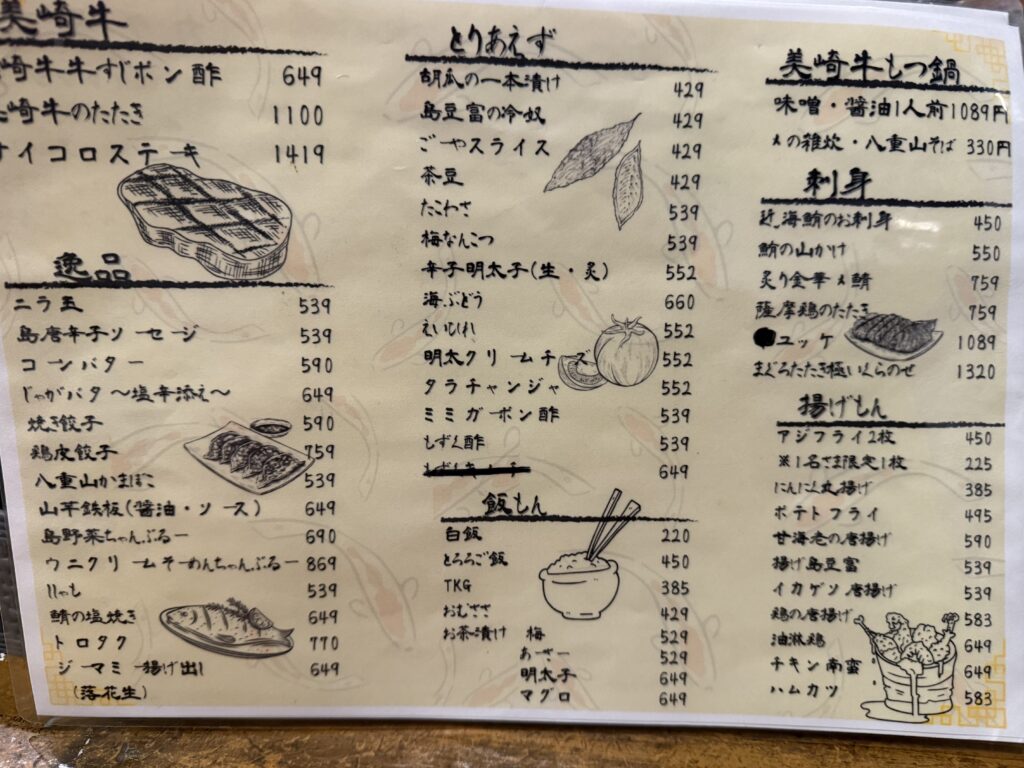 美崎牛
崎牛牛すじポン酢 649
崎牛のたたき 1100
サイコロステーキ 1419
逸品
ニラ玉 539
島唐辛子ソーセージ 539
コーンバター 590
じゃがバタ〜塩辛添え〜 649
焼き餃子 590
鶏皮餃子 759
八重山かまぼこ 539
山芋鉄板(醤油・ソース) 649
島野菜ちゃんぷるー 690
ウニクリームそーめんちゃんぷるー 869
ししゃも 539
鯖の塩焼き 649
トロタク 770
ジーマミー揚げ出し 649
(落花生)
とりあえず
胡瓜の一本漬け 429
島豆富の冷奴 429
ごーやスライス 429
茶豆 429
たこわさ 539
梅なんこつ 539
辛子明太子(生・炙) 552
海ぶどう 660
えいひれ 552
明太クリームチーズ 552
タラチャンジャ 552
ミミガーポン酢 539
もずく酢 539
649
飯もん
白飯 220
とろろご飯 450
TKG 385
おむささ 429
お茶漬け 梅 529
あーさー 529
明太子 649
マグロ 649
美崎牛もつ鍋
味噌・醤油1人前 1089円
〆の雑炊・八重山そば 330円
刺身
近海鮪のお刺身 450
鮪の山かけ 550
炙り金華〆鯖 759
薩摩鶏のたたき 759
ユッケ 1089
まぐろたたき極いくらのせ 1320
揚げもん
アジフライ2枚 450
※1名さま限定1枚 225
にんにん丸揚げ 385
ポテトフライ 495
甘海老の唐揚げ 590
揚げ島豆富 539
イカゲソ唐揚げ 539
鶏の唐揚げ 583
油淋鶏 649
チキン南蛮 649
ハムカツ 583